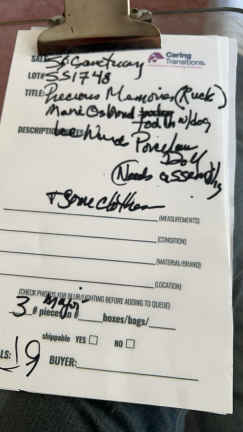 SALE Sanctuary
Caring
Transitions
LOT# SS1748
TITLE: Precious Memories (Ruck)
Marie Osmond Toddler w/dog
DESCRIPTION
Porcelain
Doll
(Needs assembly)
+ some clothes
(MEASUREMENTS)
(CONDITION)
(MATERIAL/BRAND)
(LOCATION)
(CHECK PHOTOS FOR BLUR/LIGHTING BEFORE ADDING TO QUEUE)
3 Major
# pieces/ in # boxes/bags/
shippable YES NO
LS: 19 BUYER: